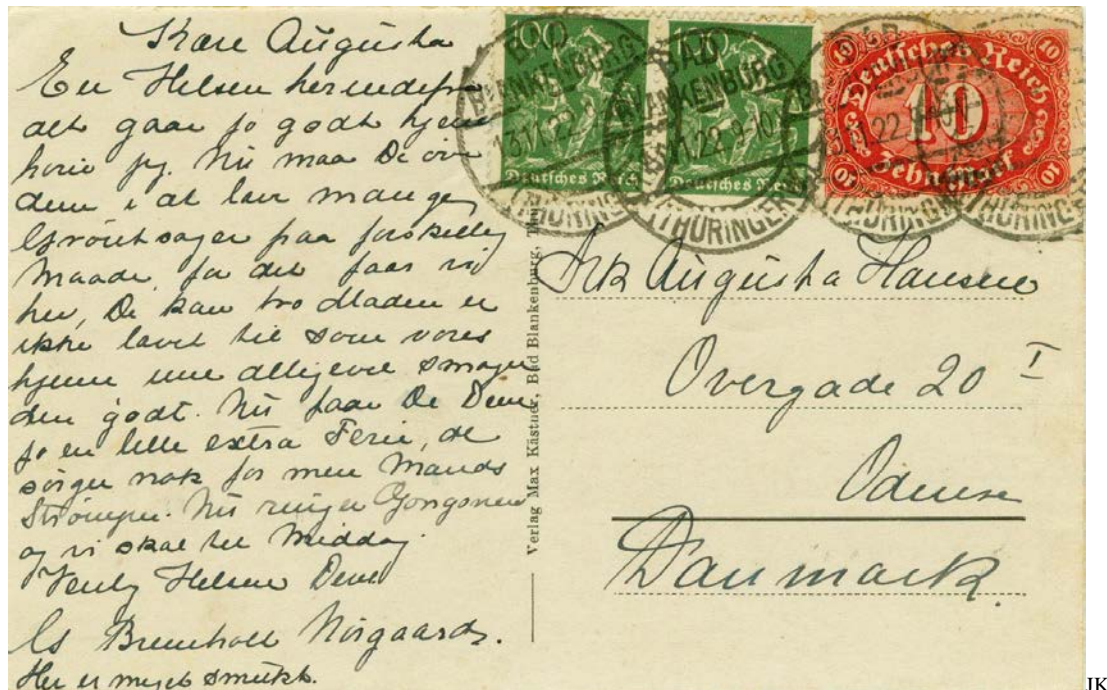 Kære Augusta
En Hilsen hernedefra
alt gaar jo godt hjemme
hører jeg. Nu maa De øve
dem i at lave mange
Grøntsager paa forskellig
Maade, for det faar vi
her, De kan tro Maden er
ikke lavet til som vores
hjemme men alligevel smager
den godt. Nu faar De Dem
jo en lille extra Ferie, de
sørger nok for min Mands
Strømper. Nu ringer Gongonen
og vi skal til Middag.
Venlig Hilsen Deres
Bremholt Nørgaard.
Her er meget smukt.
Verlag Max Kästner, Bad Blankenburg, Thür
100
Deutsches Reich
100
Deutsches Reich
Deutsches Reich
10
10
10
Zehn Mark
10
10
BAD
BLANKENBURG
13.11.22.9-10
(THÜRINGEN
BAD
BLANKENBURG
11.22.9-10
(THÜRINGERW
Frk Augusta Hansen
Overgade 20 I
Odense
Danmark.
JK